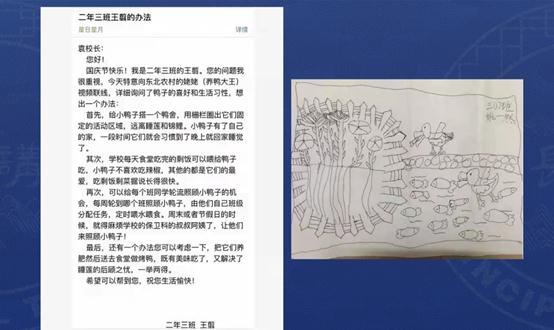 二年三班王翦的办法
星日星月 详情
袁校长：
您好！
国庆节快乐！我是二年三班的王翦。您的问题我
很重视，今天特意向东北农村的姥姥（养鸭大王）
视频联线，详细询问了鸭子的喜好和生活习性，想
出一个办法：
首先，给小鸭子搭一个鸭舍，用栅栏圈出它们固
定的活动区域，远离睡莲和锦鲤，小鸭子有了自己
的家，一段时间它们就会习惯到了晚上就回家睡觉
了。
其次，学校每天食堂吃完的剩饭可以喂给鸭子
吃，小鸭子不喜欢吃辣椒，其他的都是它们的最
爱，吃剩饭剩菜据说长得很快。
再次，可以给每个班同学轮流照顾小鸭子的机
会，每周轮到哪个班照顾小鸭子，由他们自己班级
分配任务，定时喂水喂食。周末或者节假日的时
候，就得麻烦学校的保卫科的叔叔阿姨了，让他们
来照顾小鸭子！
最后，还有一个办法您可以考虑一下，把它们养
肥然后送去食堂做烤鸭，既有美味吃了，又解决了
睡莲的后顾之忧，一举两得。
希望可以帮到您，祝您生活愉快！
二年三班 王翦